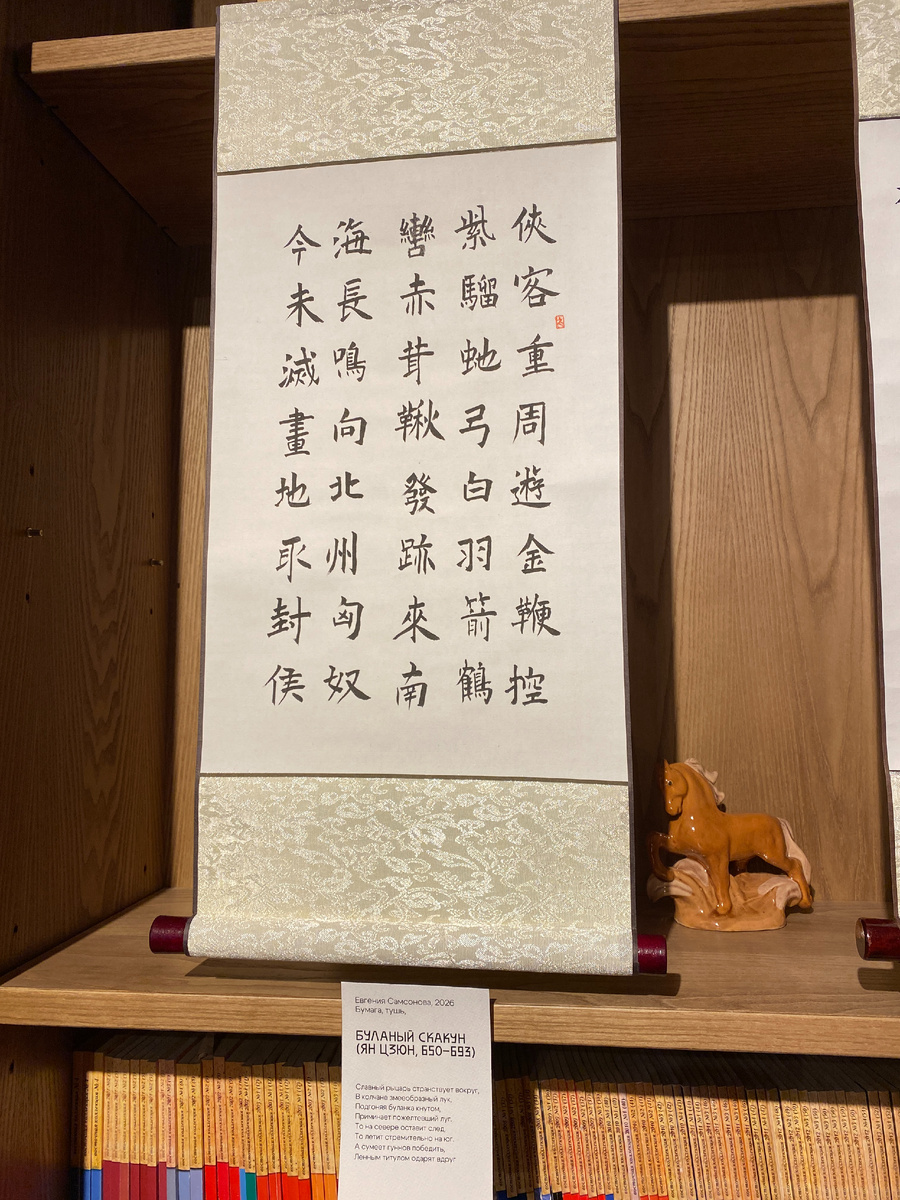 俠客重周遊金鞭控
紫騮虵弓白羽箭鶴
轡赤茸鞦發跡來南
海長鳴向北州匈奴
今未滅畫地取封侯
Евгения Самсонова, 2026
Бумага, тушь,
БУЛАНЫЙ СКАКУН
(ЯН ЦЗЮН, 650–693)
Славный рыцарь странствует вокруг,
В колчане змееобразный лук,
Подгоняя буланка кнутом,
Приминает пожелтевший луг.
То на севере оставит след,
То летит стремительно на юг.
А сумеет гуннов победить,
Ленным титулом одарят вдруг